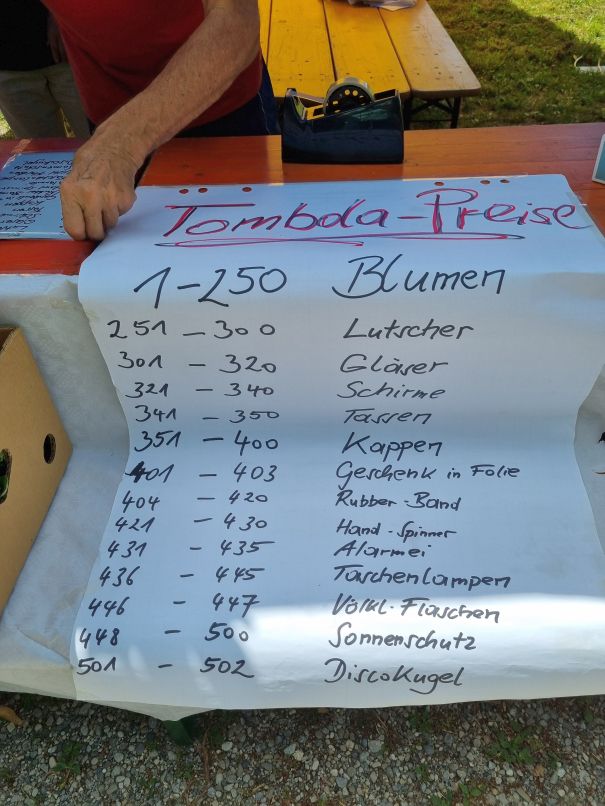 Tombola-Preise
1-250 Blumen
251 - 300 Lutscher
301 - 320 Gläser
321 - 340 Schirme
341 - 350 Tassen
351 - 400 Kappen
401 - 403 Geschenk in Folie
404 - 420 Rubber-Band
421 - 430 Hand-Spinner
431 - 435 Alarmei
436 - 445 Taschenlampen
446 - 447 Völkl-Flaschen
448 - 500 Sonnenschutz
501 - 502 DiscoKugel